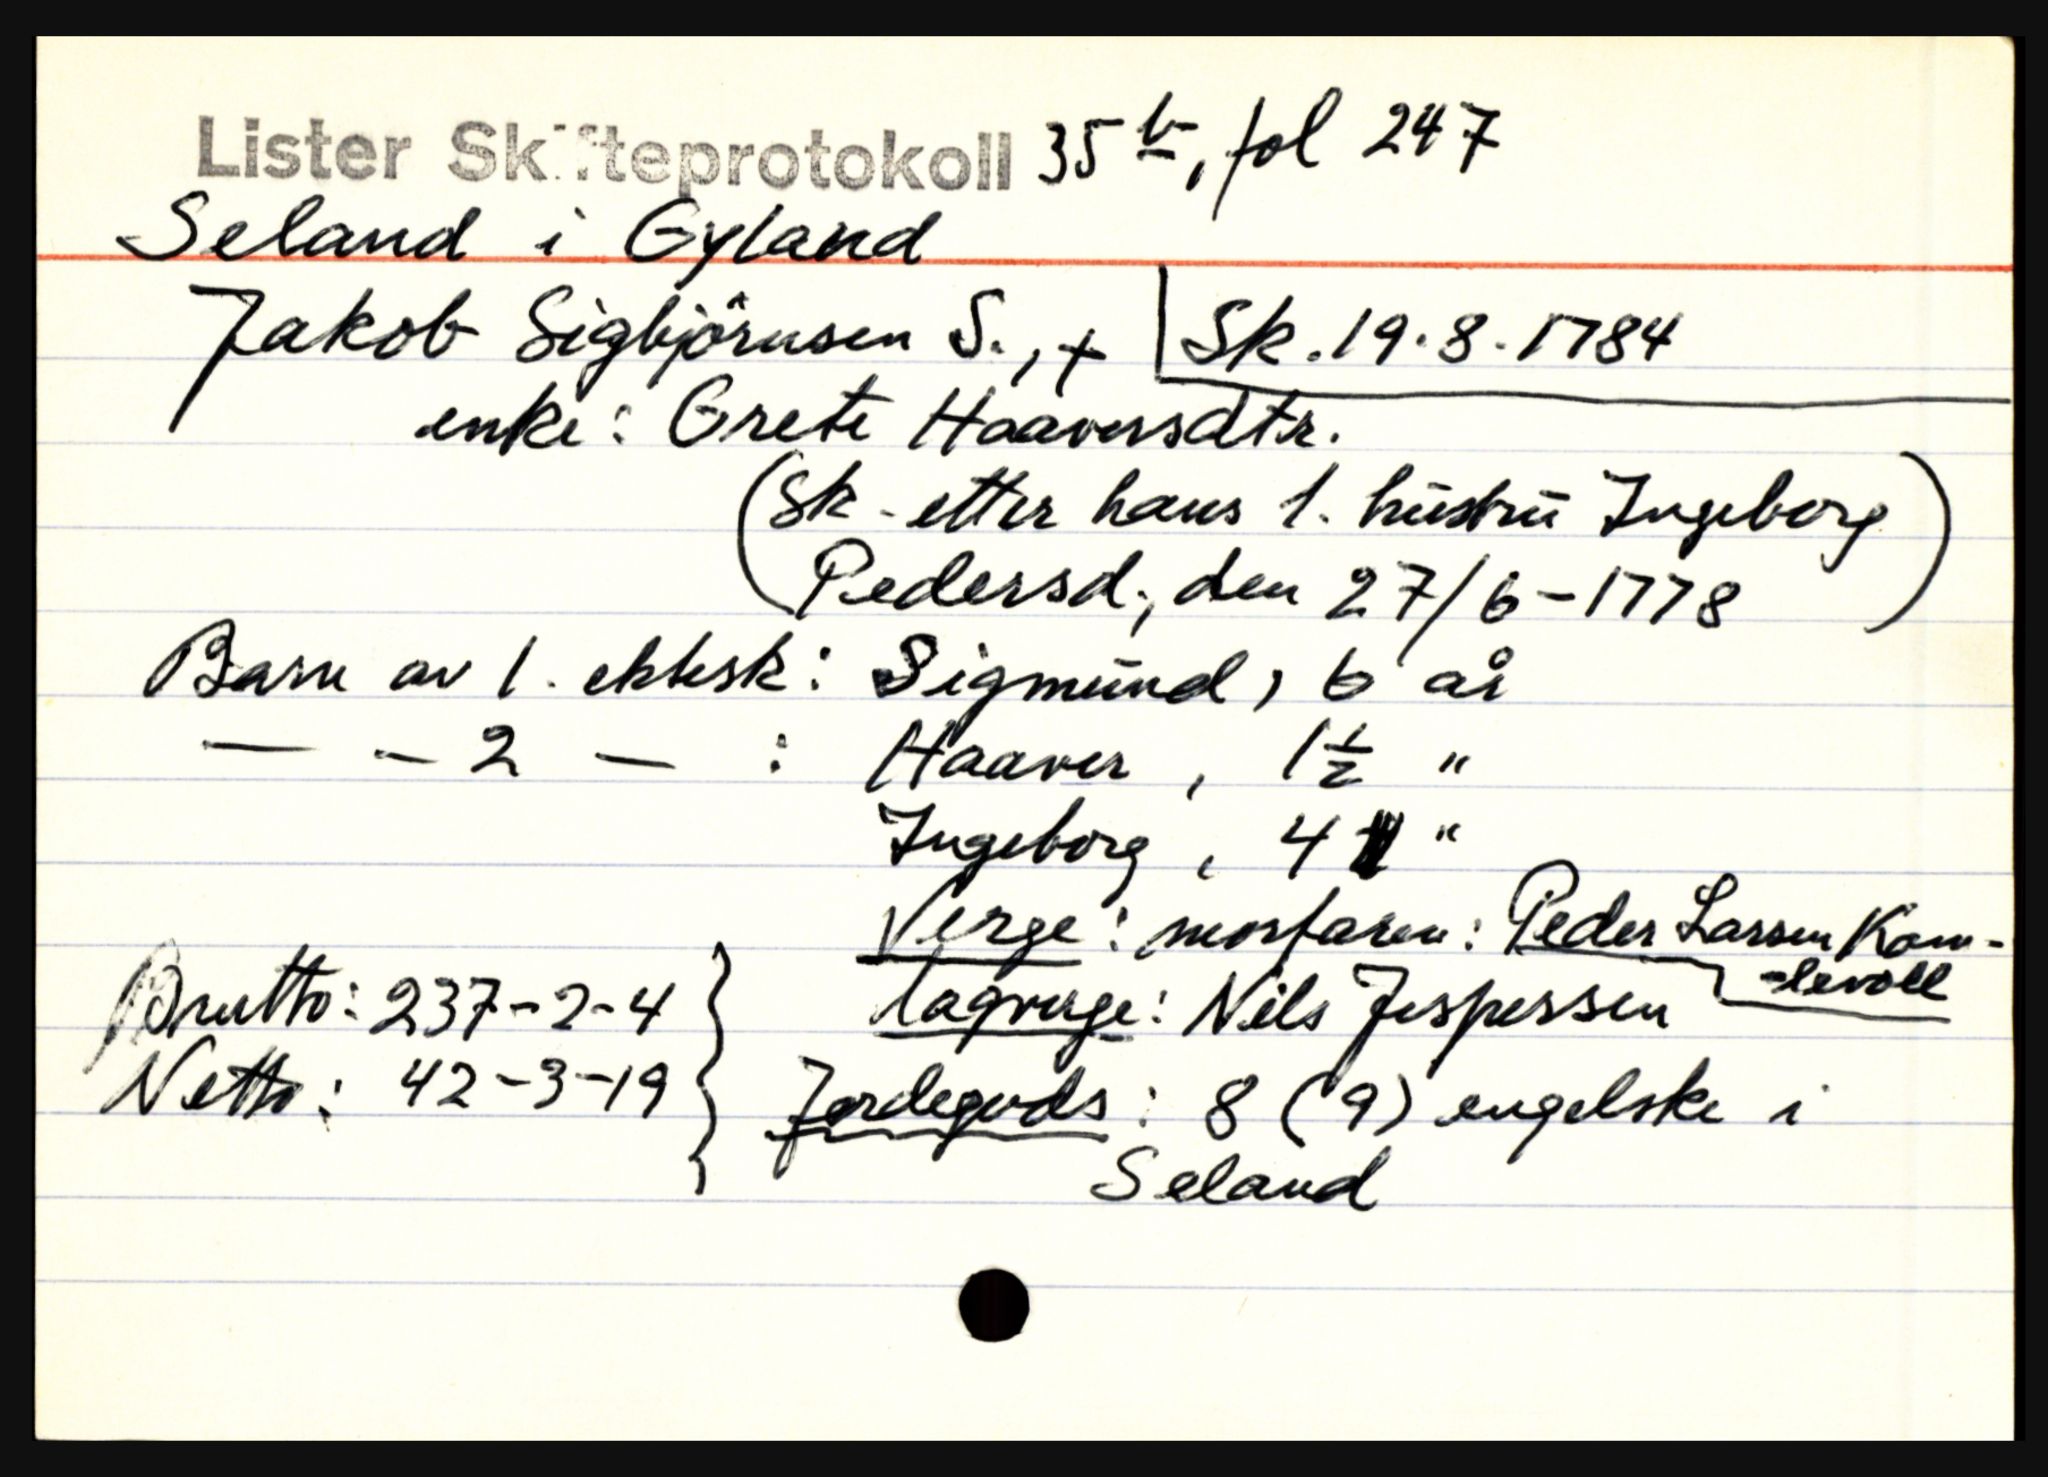 Lister Skifteprotokoll 35 b, fol 247
Seland i Gyland
Jakob Sigbjörnsen S., + Sk. 19.8.1784
enke: Grete Haaversdtr.
(Sk. etter hans 1. hustru Ingeborg
Pedersd., den 27/6-1778)
Barn av 1. ektesk: Sigmund, 6 år
— - 2 — : Haaver, 1½ "
Ingeborg, 4 "
Verge: morfaren: Peder Larsen Kom-
-levoll
Brutto: 237-2-4 } lagverge: Nils Jespersen
Netto: 42-3-19 } Jordegods: 8 (9) engelske i
Seland